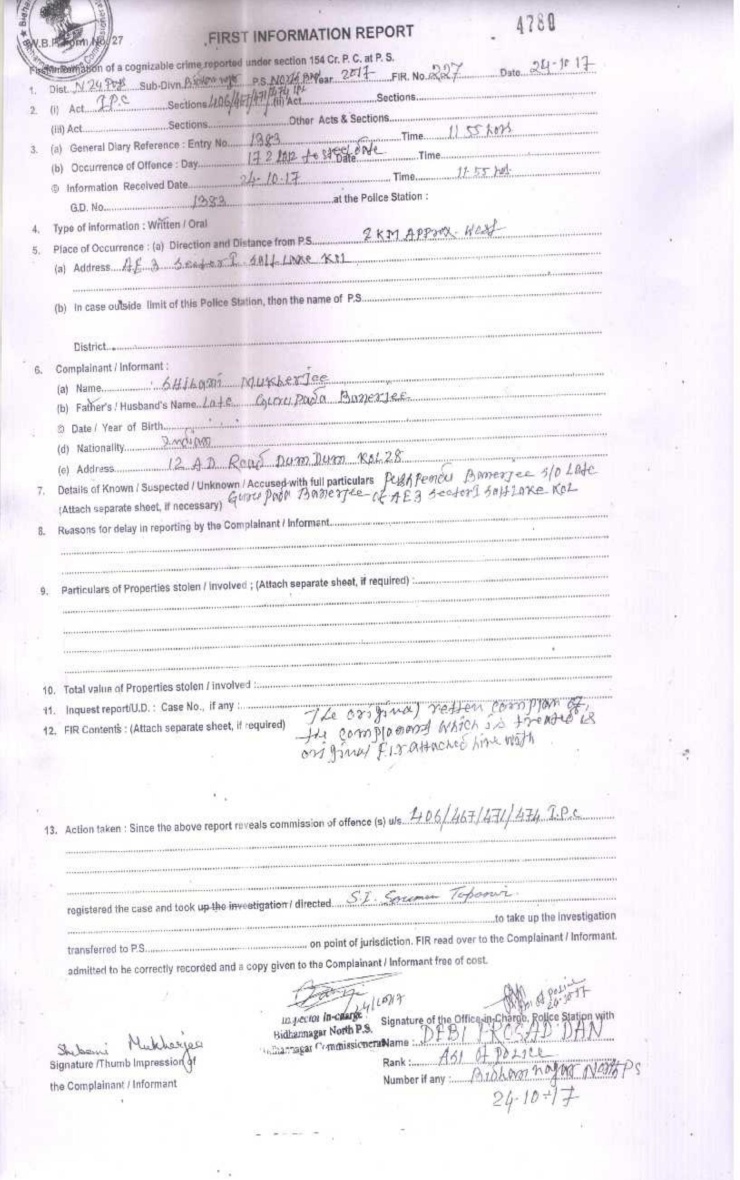 4780
W.B.P. Form No. 27
FIRST INFORMATION REPORT
First Information of a cognizable crime reported under section 154 Cr. P. C. at P. S.
1. Dist. N 24 Pgs Sub-Divn. P.S. North Year 2017 FIR. No. 227 Date 24-10-17
2. (i) Act I.P.C Sections 406/467/471/474 IPC (ii) Act Sections
(iii) Act Sections Other Acts & Sections
3. (a) General Diary Reference : Entry No. 1383 Time 11 55 hors
(b) Occurrence of Offence : Day 17 2 2012 to Date Time
© Information Received Date 24-10-17 Time 11-55 hrs
G.D. No. 1383 at the Police Station :
4. Type of information : Written / Oral
5. Place of Occurrence : (a) Direction and Distance from P.S. 2 KM Approx. West
(a) Address AE 3 Sector I Salt Lake Kol
(b) In case outside limit of this Police Station, then the name of P.S.
District
6. Complainant / Informant :
(a) Name Shibani Mukherjee
(b) Father's / Husband's Name Late Guru Pada Banerjee
© Date / Year of Birth
(d) Nationality Indian
(e) Address 12 A.D Road Dum Dum Kol 28
7. Details of Known / Suspected / Unknown / Accused with full particulars Banerjee S/O Late
(Attach separate sheet, if necessary) Guru Pada Banerjee of AE3 Sector I Salt Lake Kol
8. Reasons for delay in reporting by the Complainant / Informant
9. Particulars of Properties stolen / Involved ; (Attach separate sheet, if required) :
10. Total value of Properties stolen / involved :
11. Inquest report/U.D. : Case No., if any :
The original retten complain of
12. FIR Contents : (Attach separate sheet, if required) the complainant which is treated is
original F.I.R attached here with
13. Action taken : Since the above report reveals commission of offence (s) u/s 406/467/471/474 I.P.C
registered the case and took up the investigation / directed S.I.
to take up the investigation
transferred to P.S. on point of jurisdiction. FIR read over to the Complainant / Informant.
admitted to be correctly recorded and a copy given to the Complainant / Informant free of cost.
24/10/17
24-10-17
Inspector In-charge
Bidhannagar North P.S.
Bidhannagar Commissionerate
Signature of the Office-in-Charge, Police Station with
Name : DEBI PROSAD DAN
Rank : ASI of police
Number if any : Bidhannagar North PS
24-10-17
Shibani Mukherjee
Signature /Thumb Impression of
the Complainant / Informant